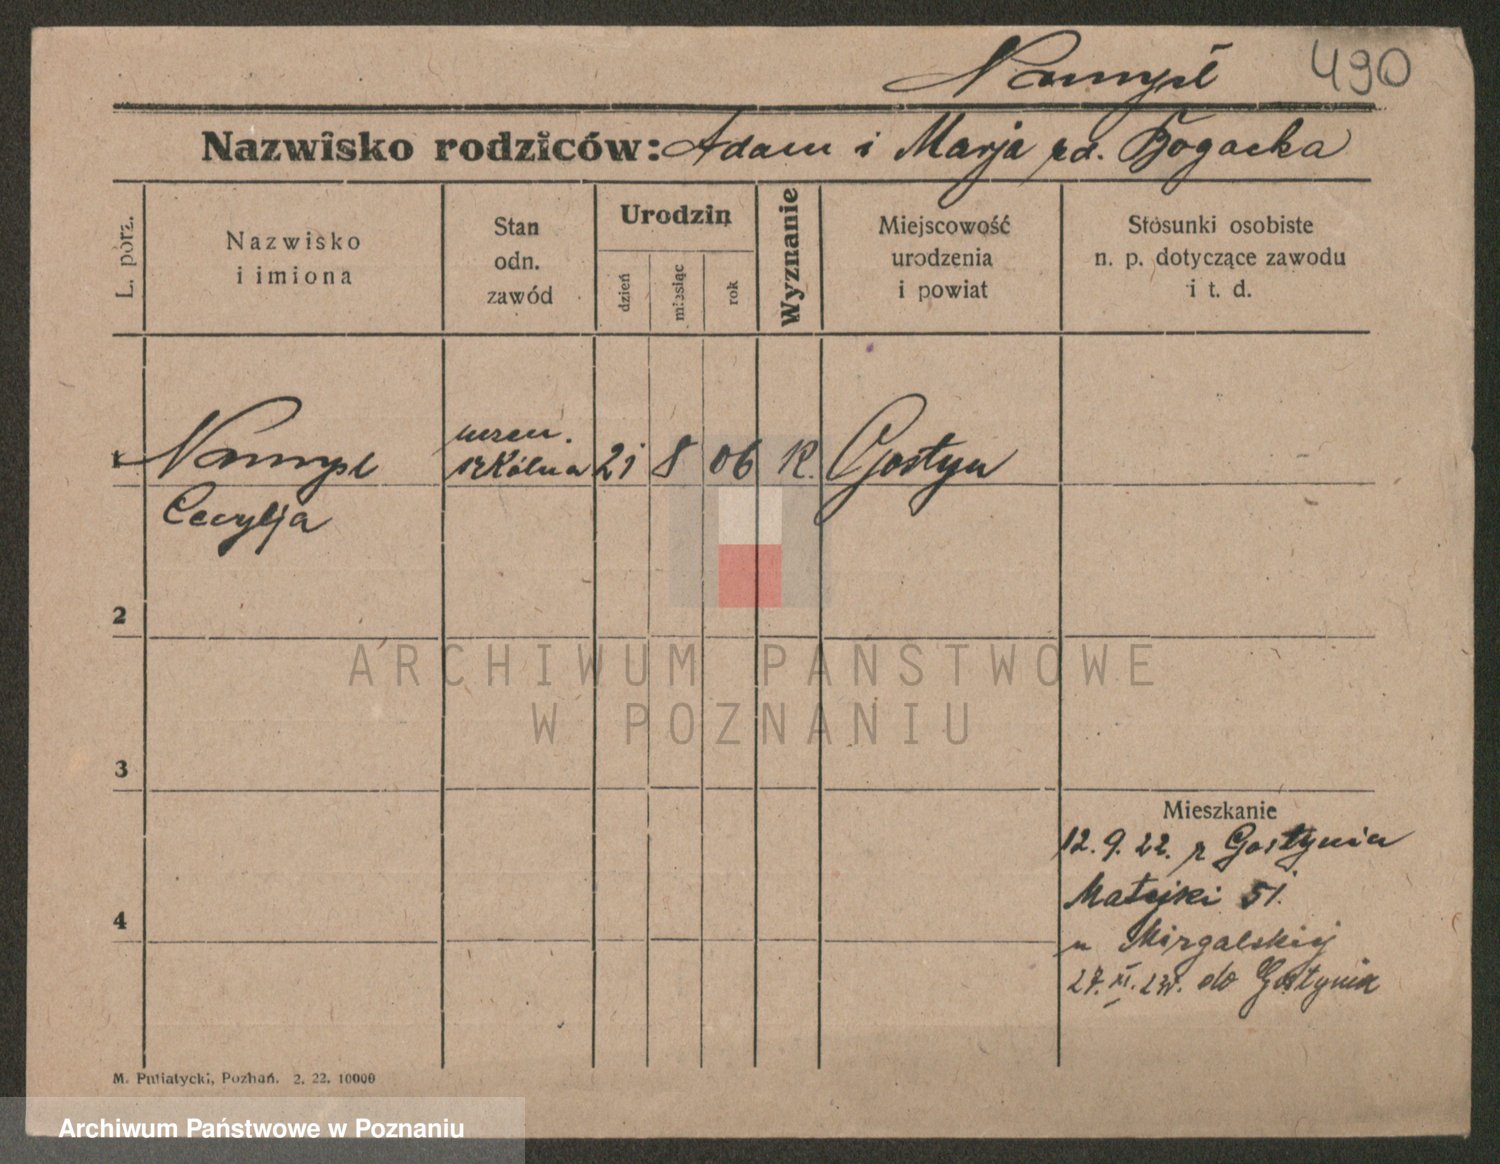 Namysł 490
Nazwisko rodziców: Adam i Marja zd. Bogacka
L. porz.
Nazwisko
i imiona
Stan
odn.
zawód
Urodzin
dzień
miesiąc
rok
Wyznanie
Miejscowość
urodzenia
i powiat
Stosunki osobiste
n. p. dotyczące zawodu
i t. d.
1 Namysł
Cecylja
uczen.
szkólna
21 8 06 K. Gostyn
2
3
4
Mieszkanie
12. 9. 22. z Gostynia
Matejki 51.
u Mizgalskij
27. XI. do Gostynia
M. Putiatycki, Poznań. 2. 22. 10000
ARCHIWUM PAŃSTWOWE
W POZNANIU
Archiwum Państwowe w Poznaniu